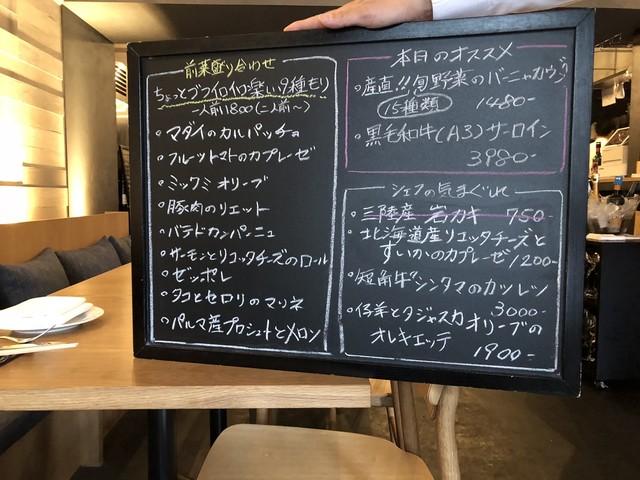 前菜盛り合わせ
ちょっとづついろいろ楽しい9種もり
一人前1800(二人前〜)
マダイのカルパッチョ
フルーツトマトのカプレーゼ
ミックスオリーブ
豚肉のリエット
パテドカンパーニュ
サーモンとリコッタチーズのロール
ゼッポレ
タコとセロリのマリネ
パルマ産プロシュートとメロン
本日のオススメ
産直!!旬野菜のバーニャカウダ
15種類 1480-
黒毛和牛(A3)サーロイン
3980-
シェフの気まぐれ
三陸産 岩カキ 750-
北海道産リコッタチーズと
すいかのカプレーゼ1200-
短角牛シンタマのカツレツ
3000-
仔羊とタジャスカオリーブの
オレキエッテ
1900-